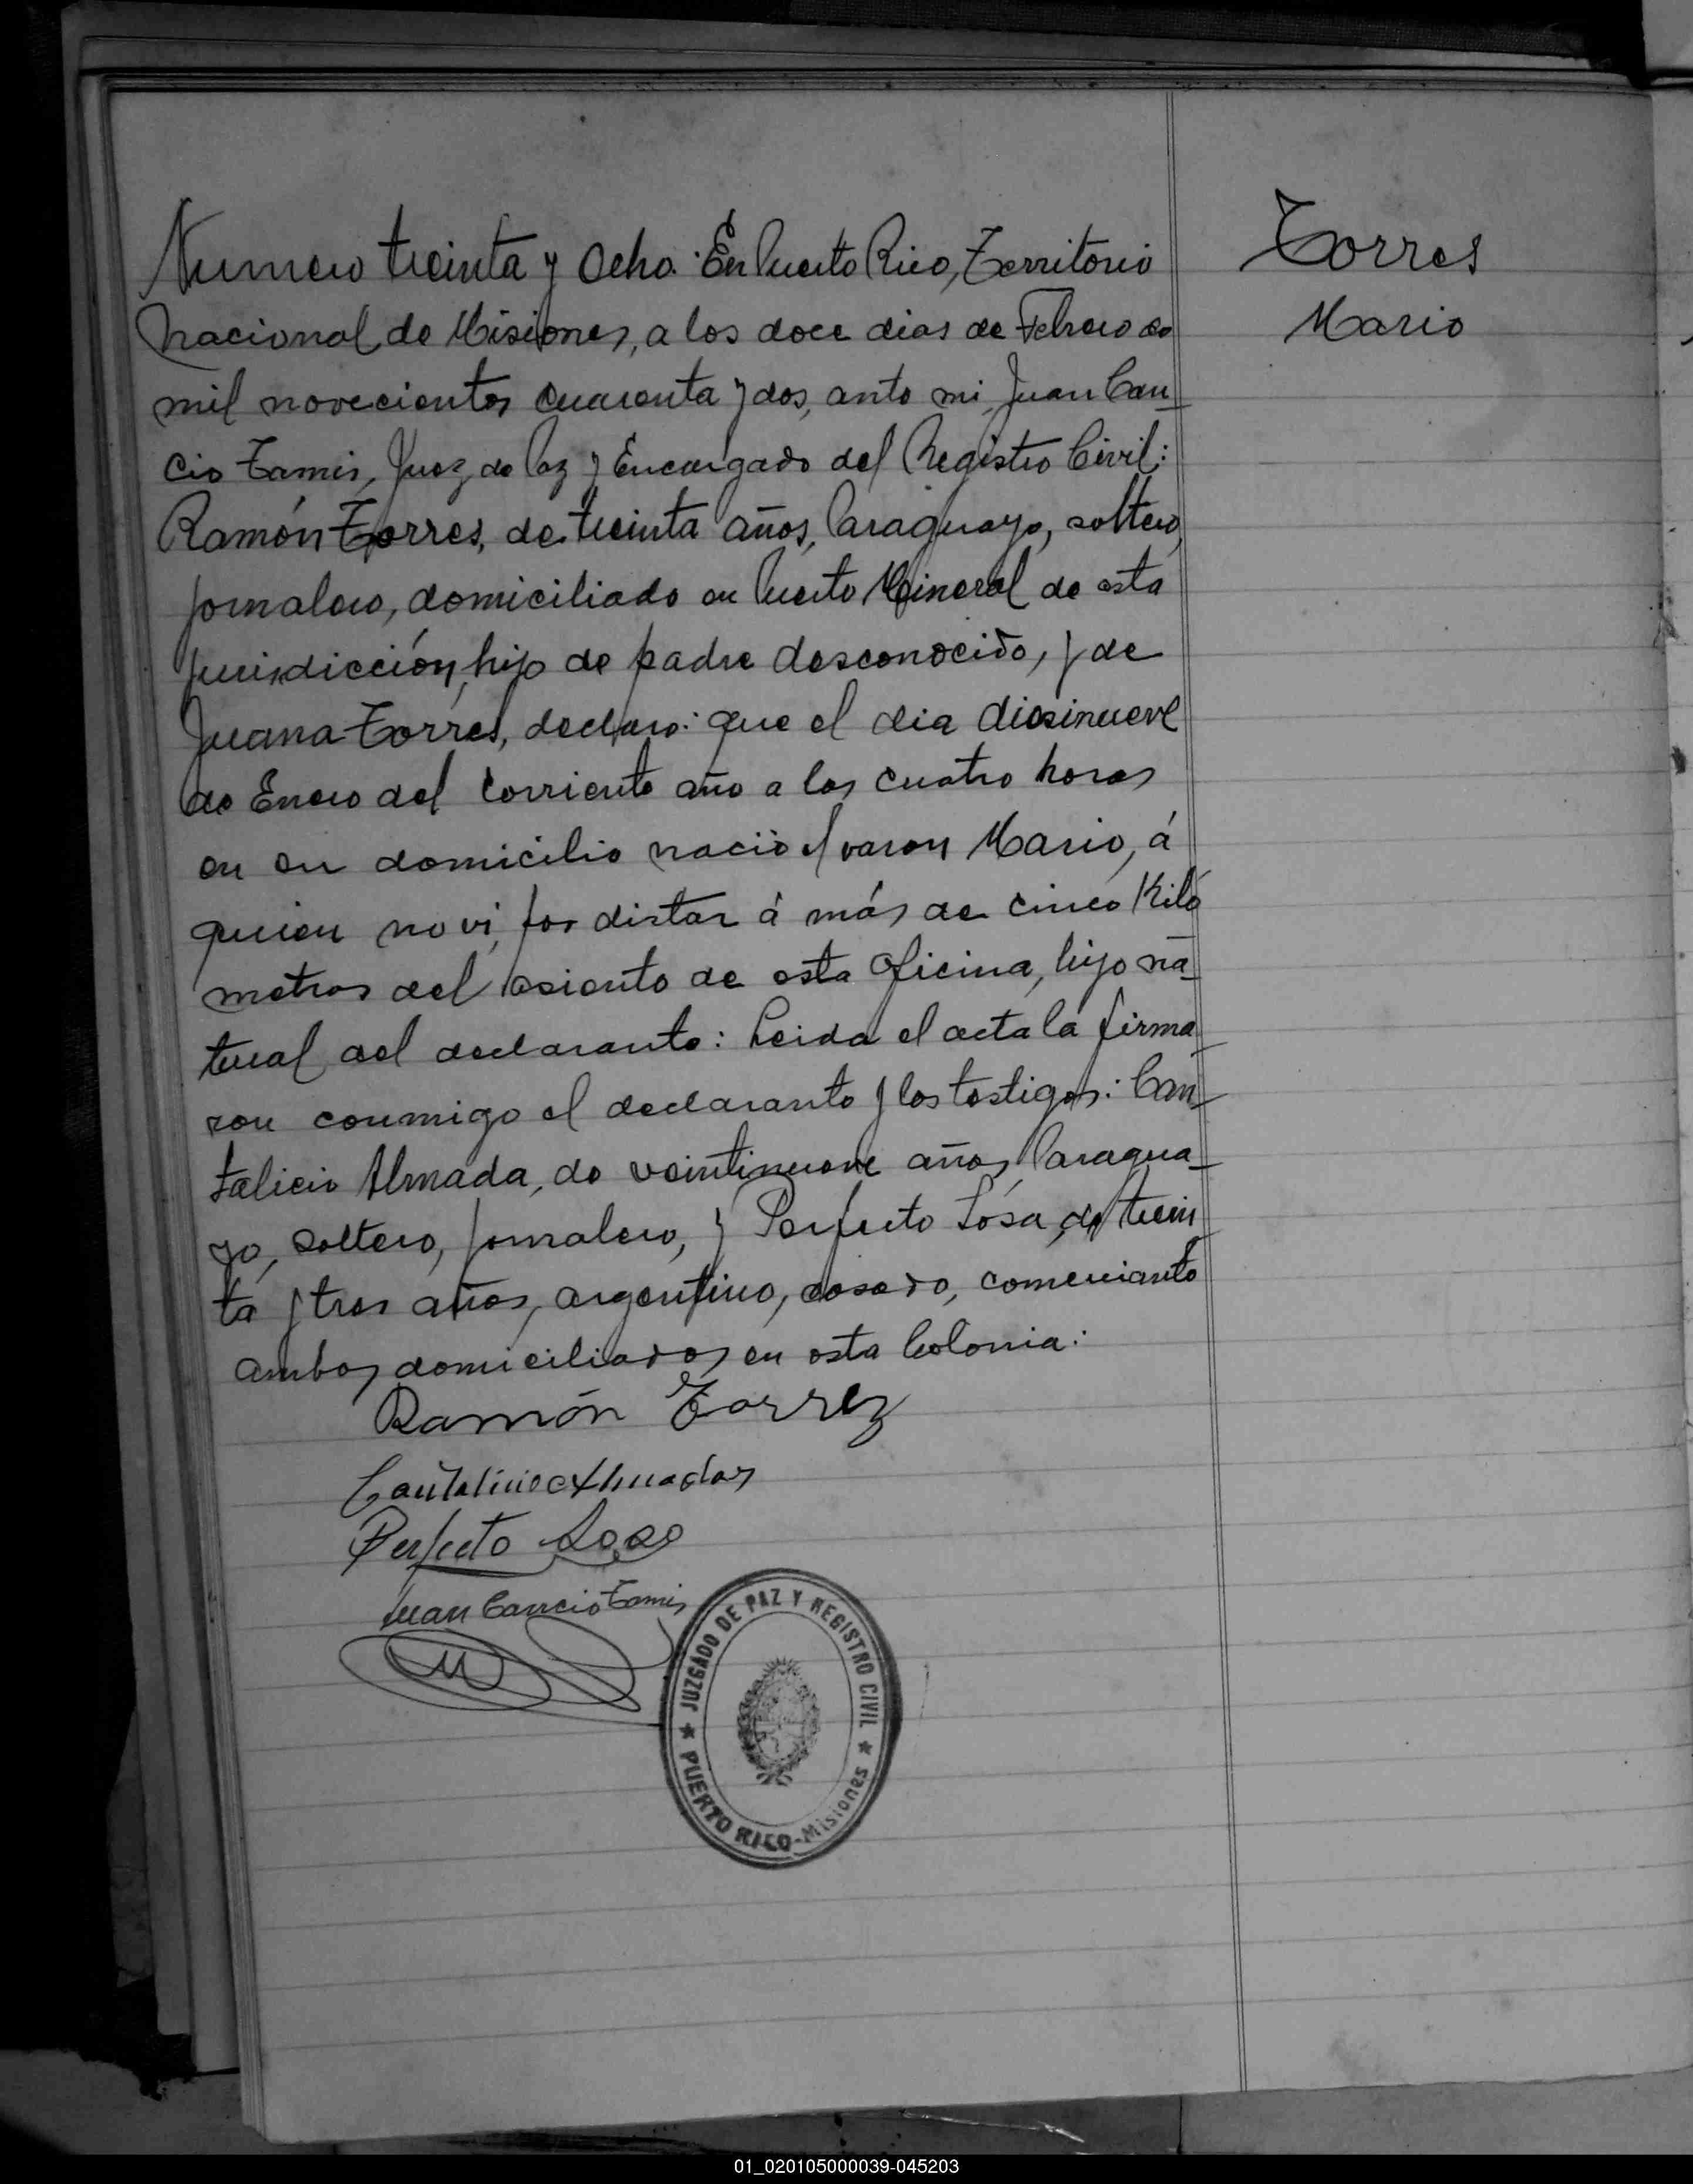 Numero treinta y Ocho. En Puerto Rico, Territorio
Nacional de Misiones, a los doce dias de Febrero de
mil novecientos cuarenta y dos, ante mi, Juan Can-
cio Tamis, Juez de Paz y Encargado del Registro Civil:
Ramón Torres, de treinta años, Paraguayo, soltero,
jornalero, domiciliado en Puerto Mineral de esta
jurisdicción, hijo de padre desconocido, y de
Juana Torres, declaro: que el dia diesinueve
de Enero del corriente año a las cuatro horas
en su domicilio nació el varon Mario, á
quien no vi, por distar á más de cinco Kiló
metros del asiento de esta Oficina, hijo na-
tural del declarante: Leida el acta la firma-
ron conmigo el declarante y los testigos: Can-
talicio Almada, de veintinueve años, Paragua-
yo, soltero, jornalero, y Perfecto Sósa, de trein-
ta y tres años, argentino, casado, comerciante
ambos domiciliados en esta Colonia:
Ramón Torrez
Cantalicio Almada
Perfecto Sosa
Juan Cancio Tamis
JUZGADO DE PAZ Y REGISTRO CIVIL
★ PUERTO RICO-Misiones ★
Torres
Mario
01_020105000039-045203